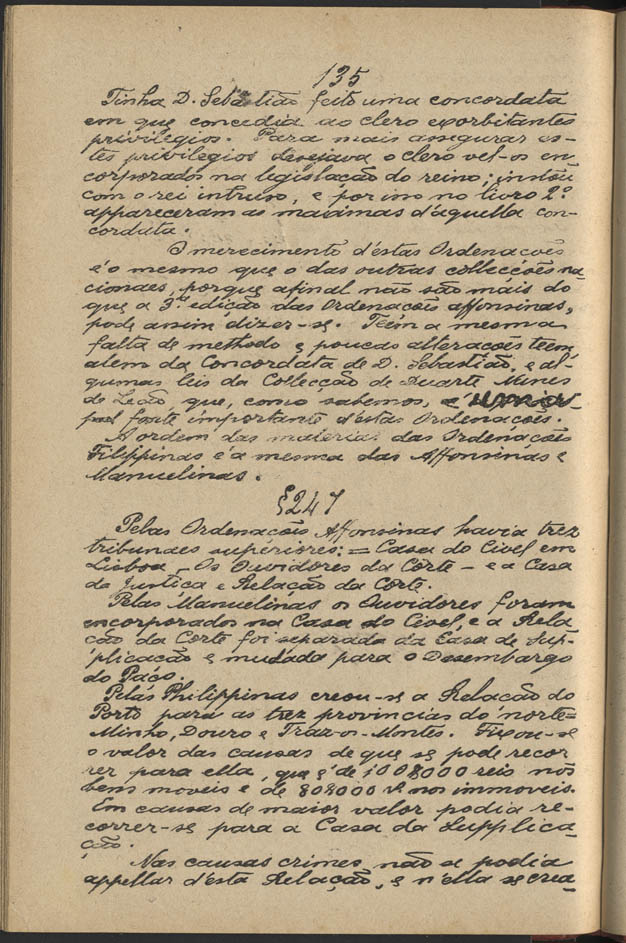 135
Tinha D. Sebastião feito uma concordata
em que concedia ao clero exorbitantes
privilegios. Para mais assegurar es-
tes privilegios desejava o clero vel-os en-
corporados na legislação do reino; instou
com o rei intruso, e por isso no livro 2º
appareceram as maximas d'aquella con-
cordata.
O merecimento d'estas Ordenações
é o mesmo que o das outras collecções na-
cionaes, porque afinal não são mais do
que a 3ª edição das Ordenações affonsinas,
pode assim dizer-se. Téem a mesma
falta de methodo e poucas alterações téem
alem da Concordata de D. Sebastião, e al-
gumas leis da Collecção de Duarte Nunes
de Leão que, como sabemos, é
pal fonte importante d'estas Ordenações.
A ordem das materias das Ordenações
Filippinas é a mesma das Affonsinas e
Manuelinas.
§ 247
Pelas Ordenações Affonsinas havia trez
tribunaes superiores: = Casa do Civel em
Lisboa - Os Ouvidores da Corte - e a Casa
de Justiça e Relação da Corte.
Pelas Manuelinas os Ouvidores foram
encorporados na Casa do Civel, e a Rela
ção da Corte foi separada da Casa de Sup-
plicação e mudada para o Desembargo
do Paço.
Pelas Philippinas creou-se a Relação do
Porto para as trez provincias do norte=
Minho, Douro e Traz-os-Montes. Fixou-se
o valor das causas de que se pode recor
rer para ella, que é de 100$000 reis nos
bens moveis e de 80$000 rs nos immoveis.
Em causas de maior valor podia re-
correr-se para a Casa da Supplica-
ção.
Nas causas crimes não se podia
appellar d'esta Relação, e n'ella se crea-